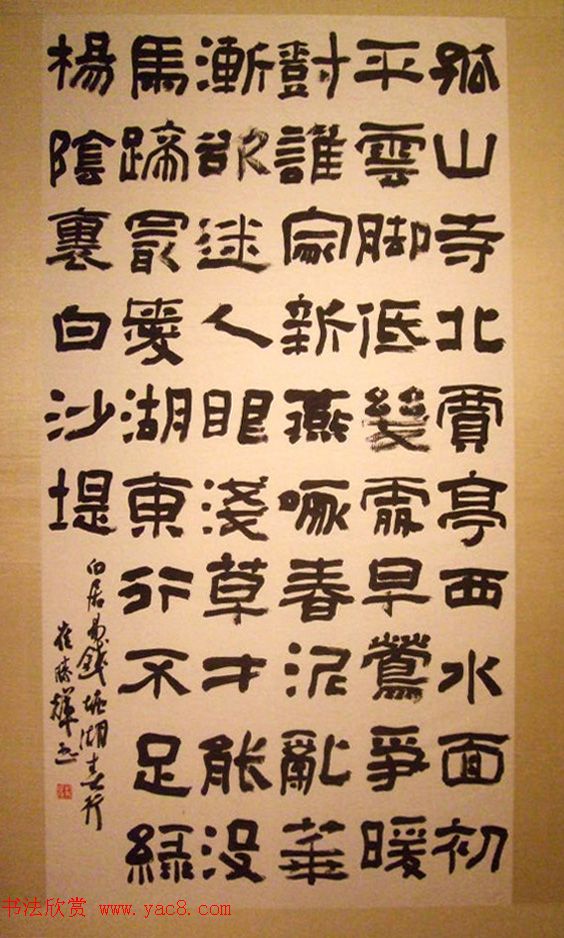 孤山寺北賈亭西水面初
平雲脚低幾處早鶯爭暖
樹誰家新燕啄春泥亂華
漸欲迷人眼淺草才能没
馬蹄最愛湖東行不足綠
楊陰裏白沙堤
白居易錢塘湖春行
崔勝輝书
书法欣赏 www.yac8.com